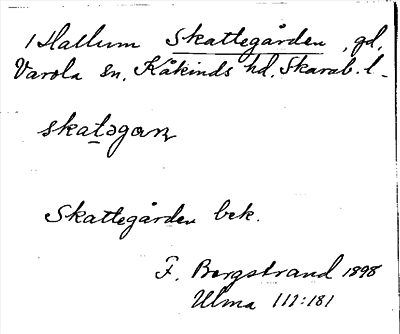 1 Hallum Skattegården, gd,
Varola sn. Kåkinds hd, Skarab. l.
skatəgaɳ
Skattegården bek.
F. Bergstrand 1898
Ulma 111:181